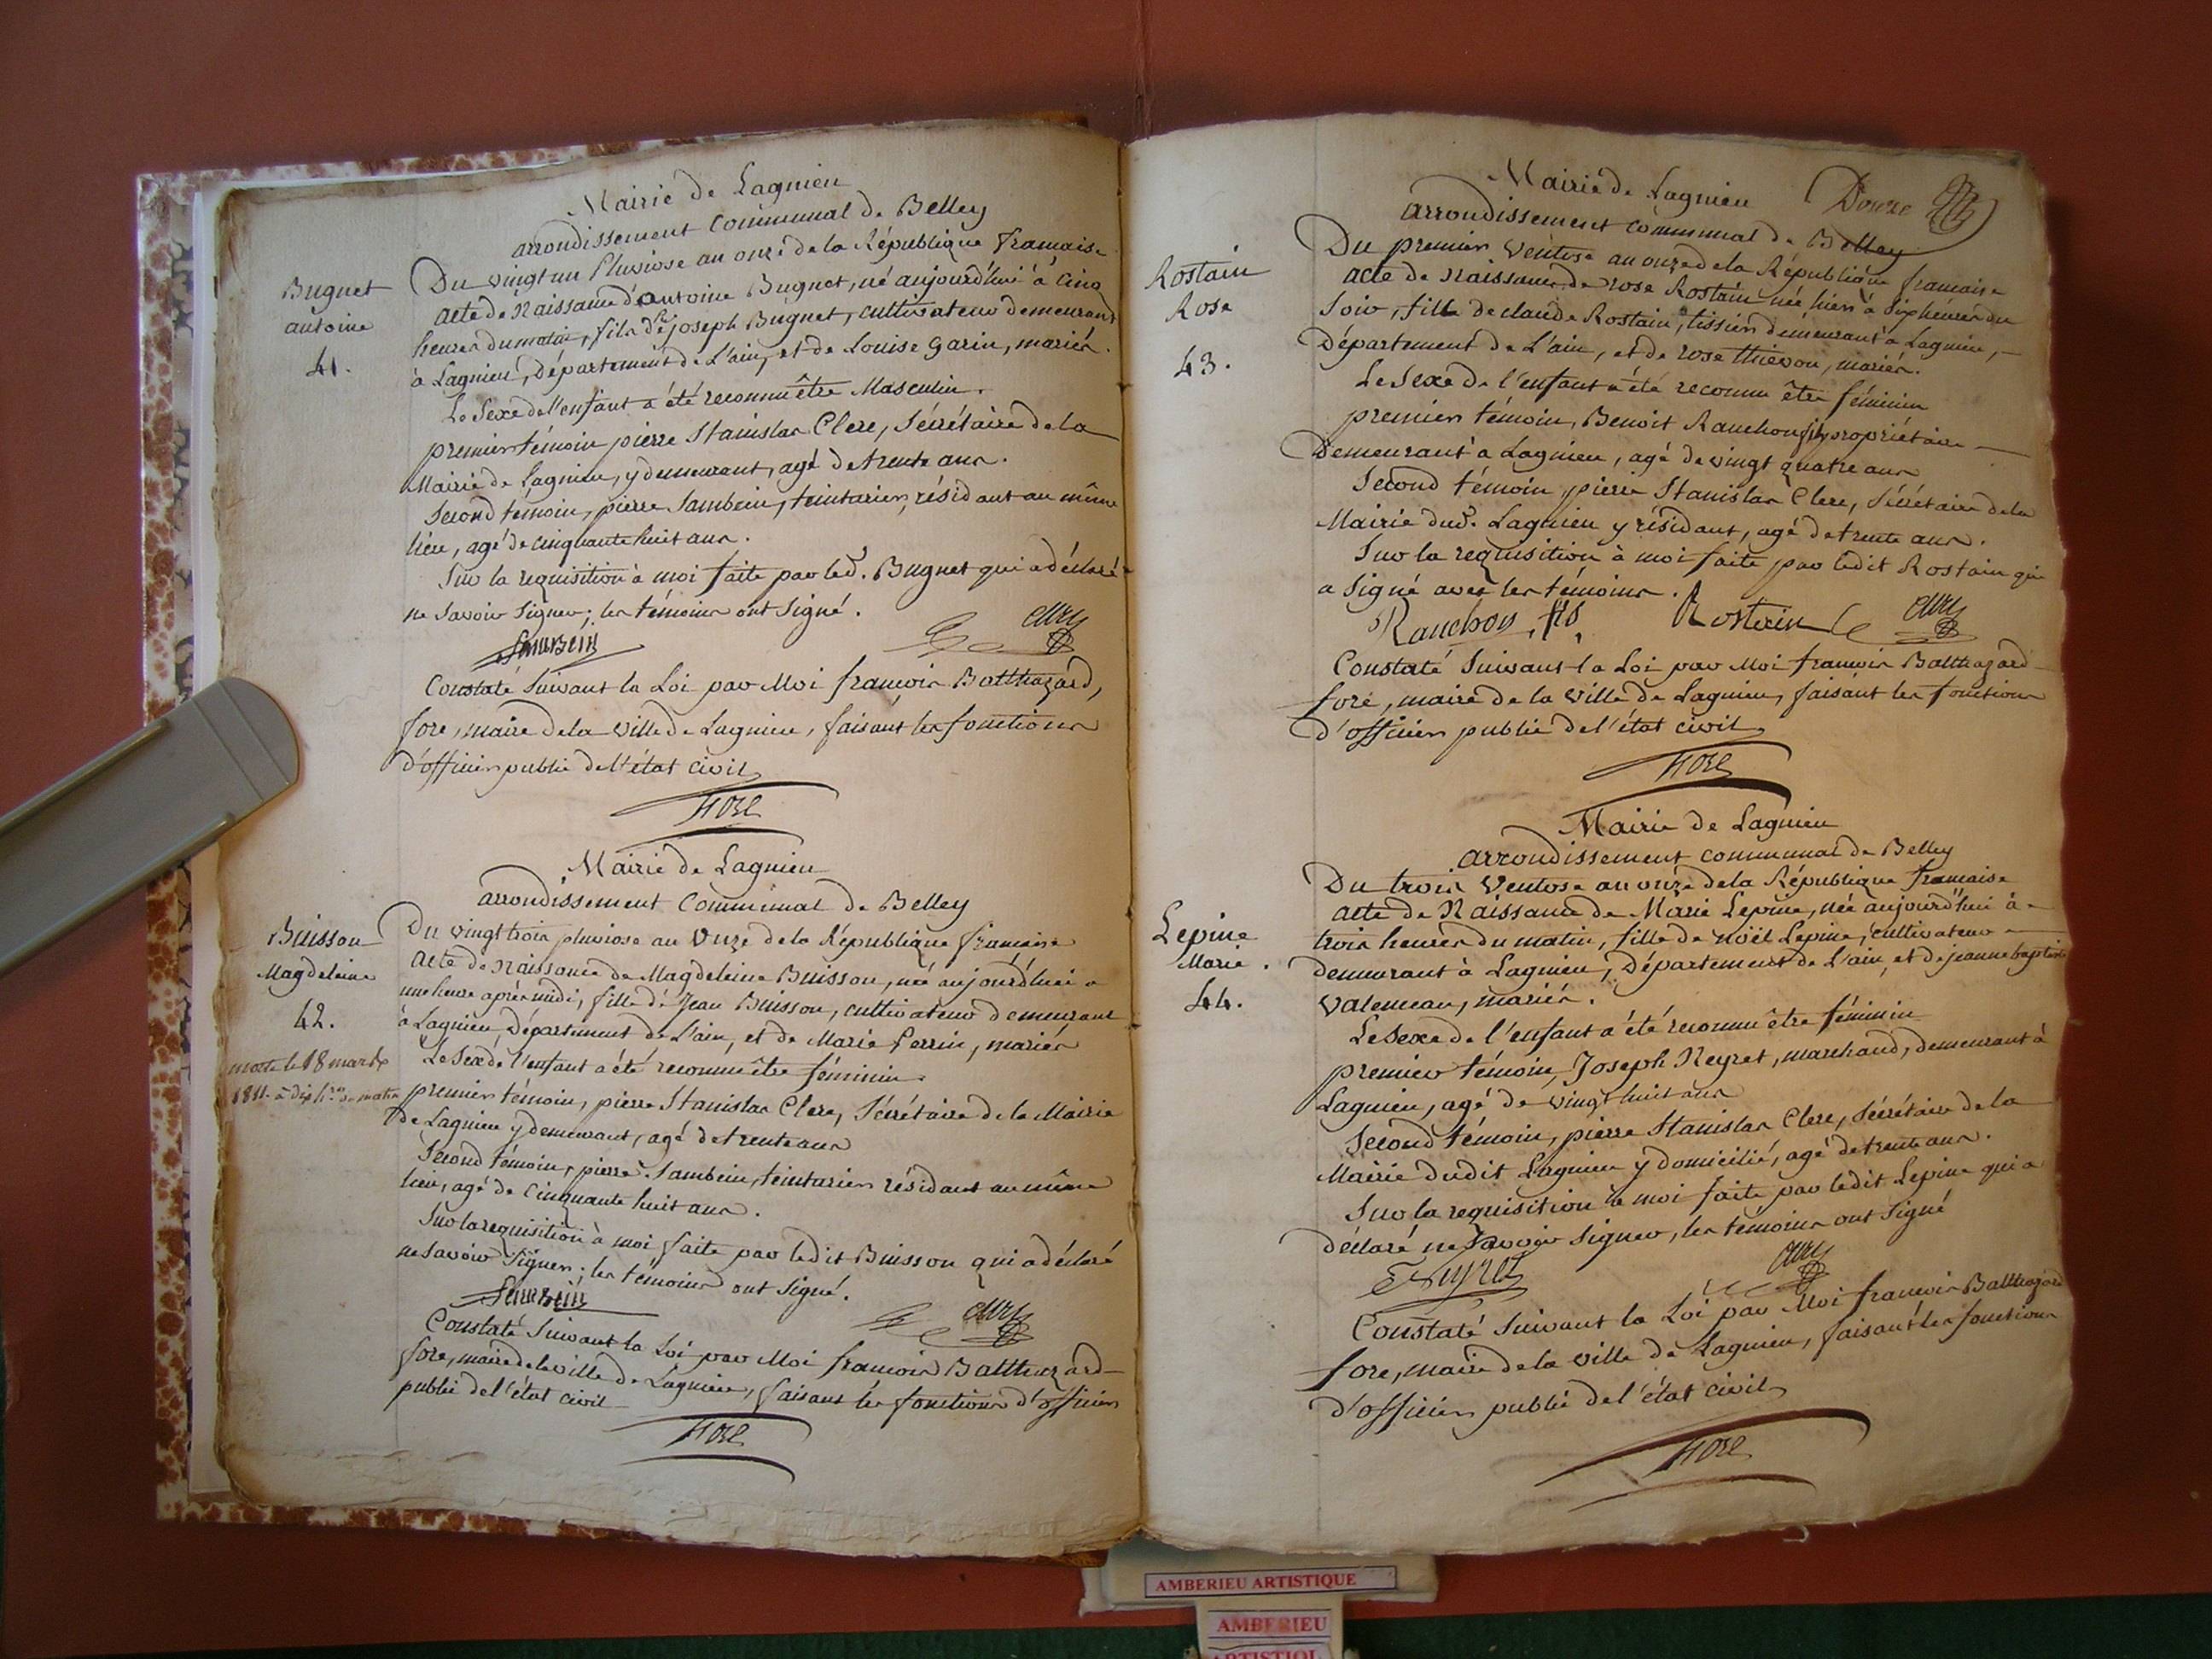 Mairie de Lagnieu
arrondissement Communal de Belley
Bugnet
antoine
41.
Du vingt un Pluviose an onze de la République francaise
acte de Naissance d'antoine Bugnet, né aujourd'hui à cinq
heures du matin, fils de joseph Bugnet, cultivateur demeurant
à Lagnieu, Département de L'ain, et de Louise garin, mariés.
Le Sexe de l'enfant a été reconnu être Masculin.
premier témoin pierre Stanislas Clerc, Sécrétaire de la
Mairie de Lagnieu, y demeurant, agé de trente ans.
Second témoin, pierre Sambein, teinturier, résidant au même
lieu, agé de cinquante huit ans.
Sur la requisition à moi faite par led. Bugnet qui a déclaré
ne Savoir Signer; les témoins ont Signé.
Sambein
Constaté Suivant la Loi par Moi francois Balthazard,
fore, maire de la Ville de Lagnieu, faisant les fonctions
d'officier public de l'état civil
fore
Mairie de Lagnieu
arrondissement Communal de Belley
Buisson
Magdeleine
42.
morte le 18 mars
1811 à dix h.res du matin
Du vingt trois pluviose an Onze de la République francaise
acte de Naissance de Magdeleine Buisson, née aujourd'hui a
une heure après midi, fille de Jean Buisson, cultivateur demeurant
à Lagnieu, Département de L'ain, et de Marie Perrin, mariés
Le Sexe de l'enfant a été reconnu être féminin.
premier témoin, pierre Stanislas Clerc, Sécrétaire de la Mairie
de Lagnieu y demeurant, agé de trente ans
Second témoin, pierre Sambein, teinturier résidant au même
lieu, agé de cinquante huit ans.
Sur la requisition à moi faite par ledit Buisson qui a déclaré
ne Savoir Signer; les témoins ont Signé.
Sambein
Constaté Suivant la Loi par Moi francois Balthazard
fore, maire de la ville de Lagnieu, faisant les fonctions d'officier
public de l'état civil
fore
Mairie de Lagnieu
Douze
arrondissement communal de Belley
Rostain
Rose
43.
Du premier Ventose an onze de la République francaise
acte de Naissance de rose Rostain née hier à Six heures du
Soir, fille de claude Rostain, tissier demeurant à Lagnieu,
Département de L'ain, et de rose thiévon, mariés.
Le Sexe de l'enfant a été reconnu être féminin
premier témoin, Benoit Ranchon fils propriétaire
Demeurant à Lagnieu, agé de vingt quatre ans
Second témoin pierre Stanislas Clerc, Sécrétaire de la
Mairie dud. Lagnieu y résidant, agé de trente ans.
Sur la requisition à moi faite par ledit Rostain qui
a Signé avec les témoins.
Ranchon fils Rostain
Constaté Suivant la Loi par Moi francois Balthazard
fore, maire de la Ville de Lagnieu, faisant les fonctions
d'officier public de l'état civil
fore
Mairie de Lagnieu
arrondissement communal de Belley
Lepine
Marie.
44.
Du trois Ventose an onze de la République francaise
acte de Naissance de Marie Lepine, née aujourd'hui à
trois heures du matin, fille de noël Lepine, cultivateur
demeurant à Lagnieu, Département de L'ain, et de jeanne baptiste
Valencau, mariés.
Le Sexe de l'enfant a été reconnu être féminin
premier témoin, Joseph Neyret, marchand, demeurant à
Lagnieu, agé de vingt huit ans
Second témoin, pierre Stanislas Clerc, Sécrétaire de la
Mairie dudit Lagnieu y domicilié, agé de trente ans.
Sur la requisition à moi faite par ledit Lepine qui a
déclaré ne Savoir Signer, les témoins ont Signé
Constaté Suivant la Loi par Moi francois Balthazard
fore, maire de la ville de Lagnieu, faisant les fonctions
d'officier public de l'état civil
fore
AMBERIEU ARTISTIQUE
AMBERIEU